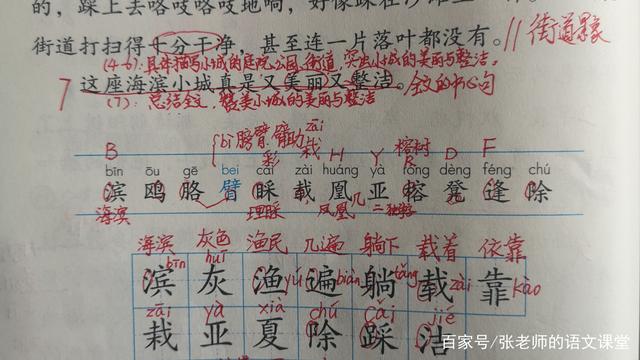 的，踩上去咯吱咯吱地响，好像踩在沙滩上
街道打扫得十分干净，甚至连一片落叶都没有。 // 街道景象
(4-6)：具体描写小城的庭院、公园、街道，突出小城的美丽与整洁。
7 这座海滨小城真是又美丽又整洁。全文的中心句
(7)：总结全文，赞美小城的美丽与整洁
bì 膀臂、臂助 zāi 栽 榕树
B 彩 H Y R D F
bīn ōu gē bei cǎi zài huáng yà róng dèng féng chú
滨 鸥 胳 臂 睬 载 凰 亚 榕 凳 逢 除
海滨 理睬 凤凰 几
海滨 灰色 渔民 几遍 躺下 载着 依靠
滨 bīn 灰 huī 渔 yú 遍 biàn 躺 tǎng 载 zài 靠 kào
zāi yà xià chú cǎi jié
栽 亚 夏 除 踩 洁
百家号/张老师的语文课堂